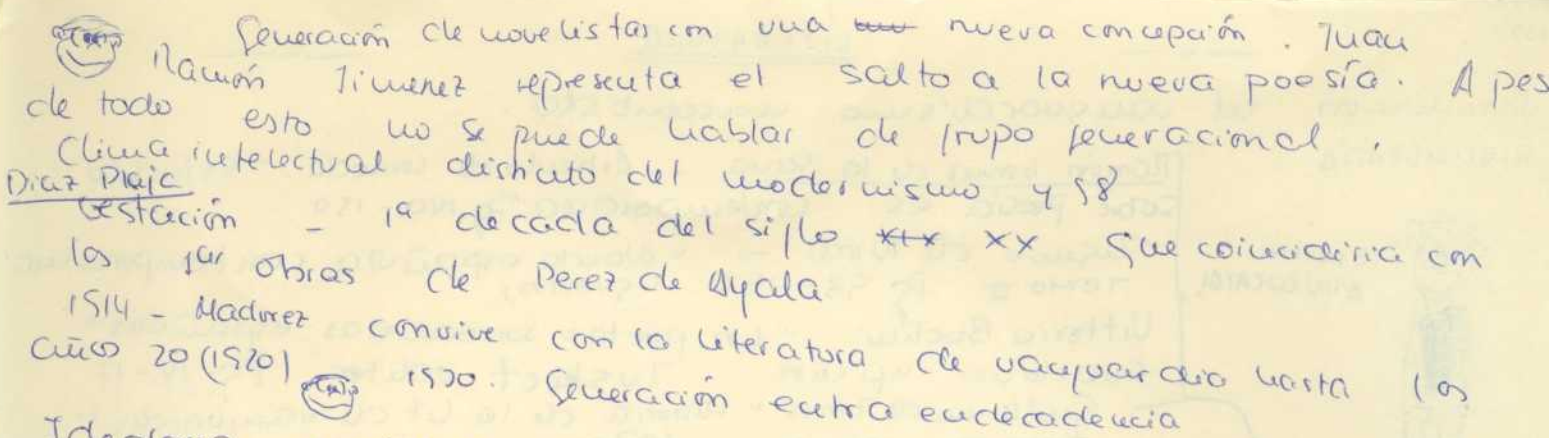 Generación de novelistas con una nueva concepción. Juan
Ramón Jimenez representa el salto a la nueva poesía. A pes
de todo esto no se puede hablar de grupo generacional.
Clima intelectual distinto del modernismo y 98
Diaz Plaja
Gestación - 1ª decada del siglo XIX XX que coincidiria con
las 1as obras de Perez de Ayala
1914 - Madurez convive con la literatura de vanguardia hasta los
años 20 (1920) 1930. Generación entra en decadencia